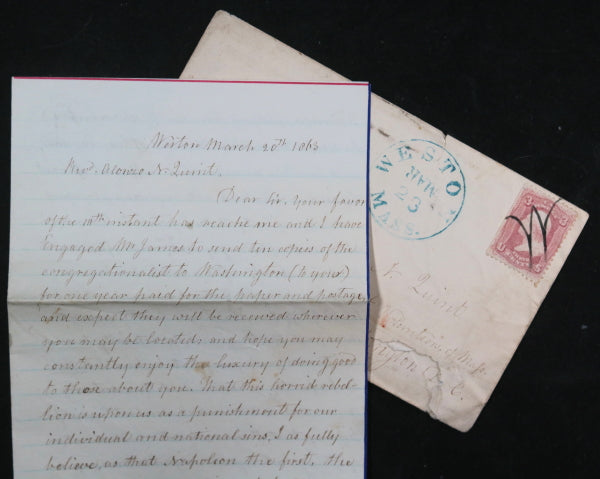 Weston March 20th 1863
Revd. Alonzo H. Quint.
Dear Sir, your favor
of the 14th instant has reache me and I have
Engaged Mr James to send ten copies of the
congregationalist to Washington (to you)
for one year paid for the paper and postage,
and expect they will be received wherever
you may be located; and hope you may
constantly enjoy the luxury of doing good
to those about you. That this horrid rebel-
lion is upon us as a punishment for our
individual and national sins, I as fully
believe, as that Napoleon the first, the
WESTON
MAR
23
MASS.
3 3
U S
W
Quint
of Mass.
D.C.